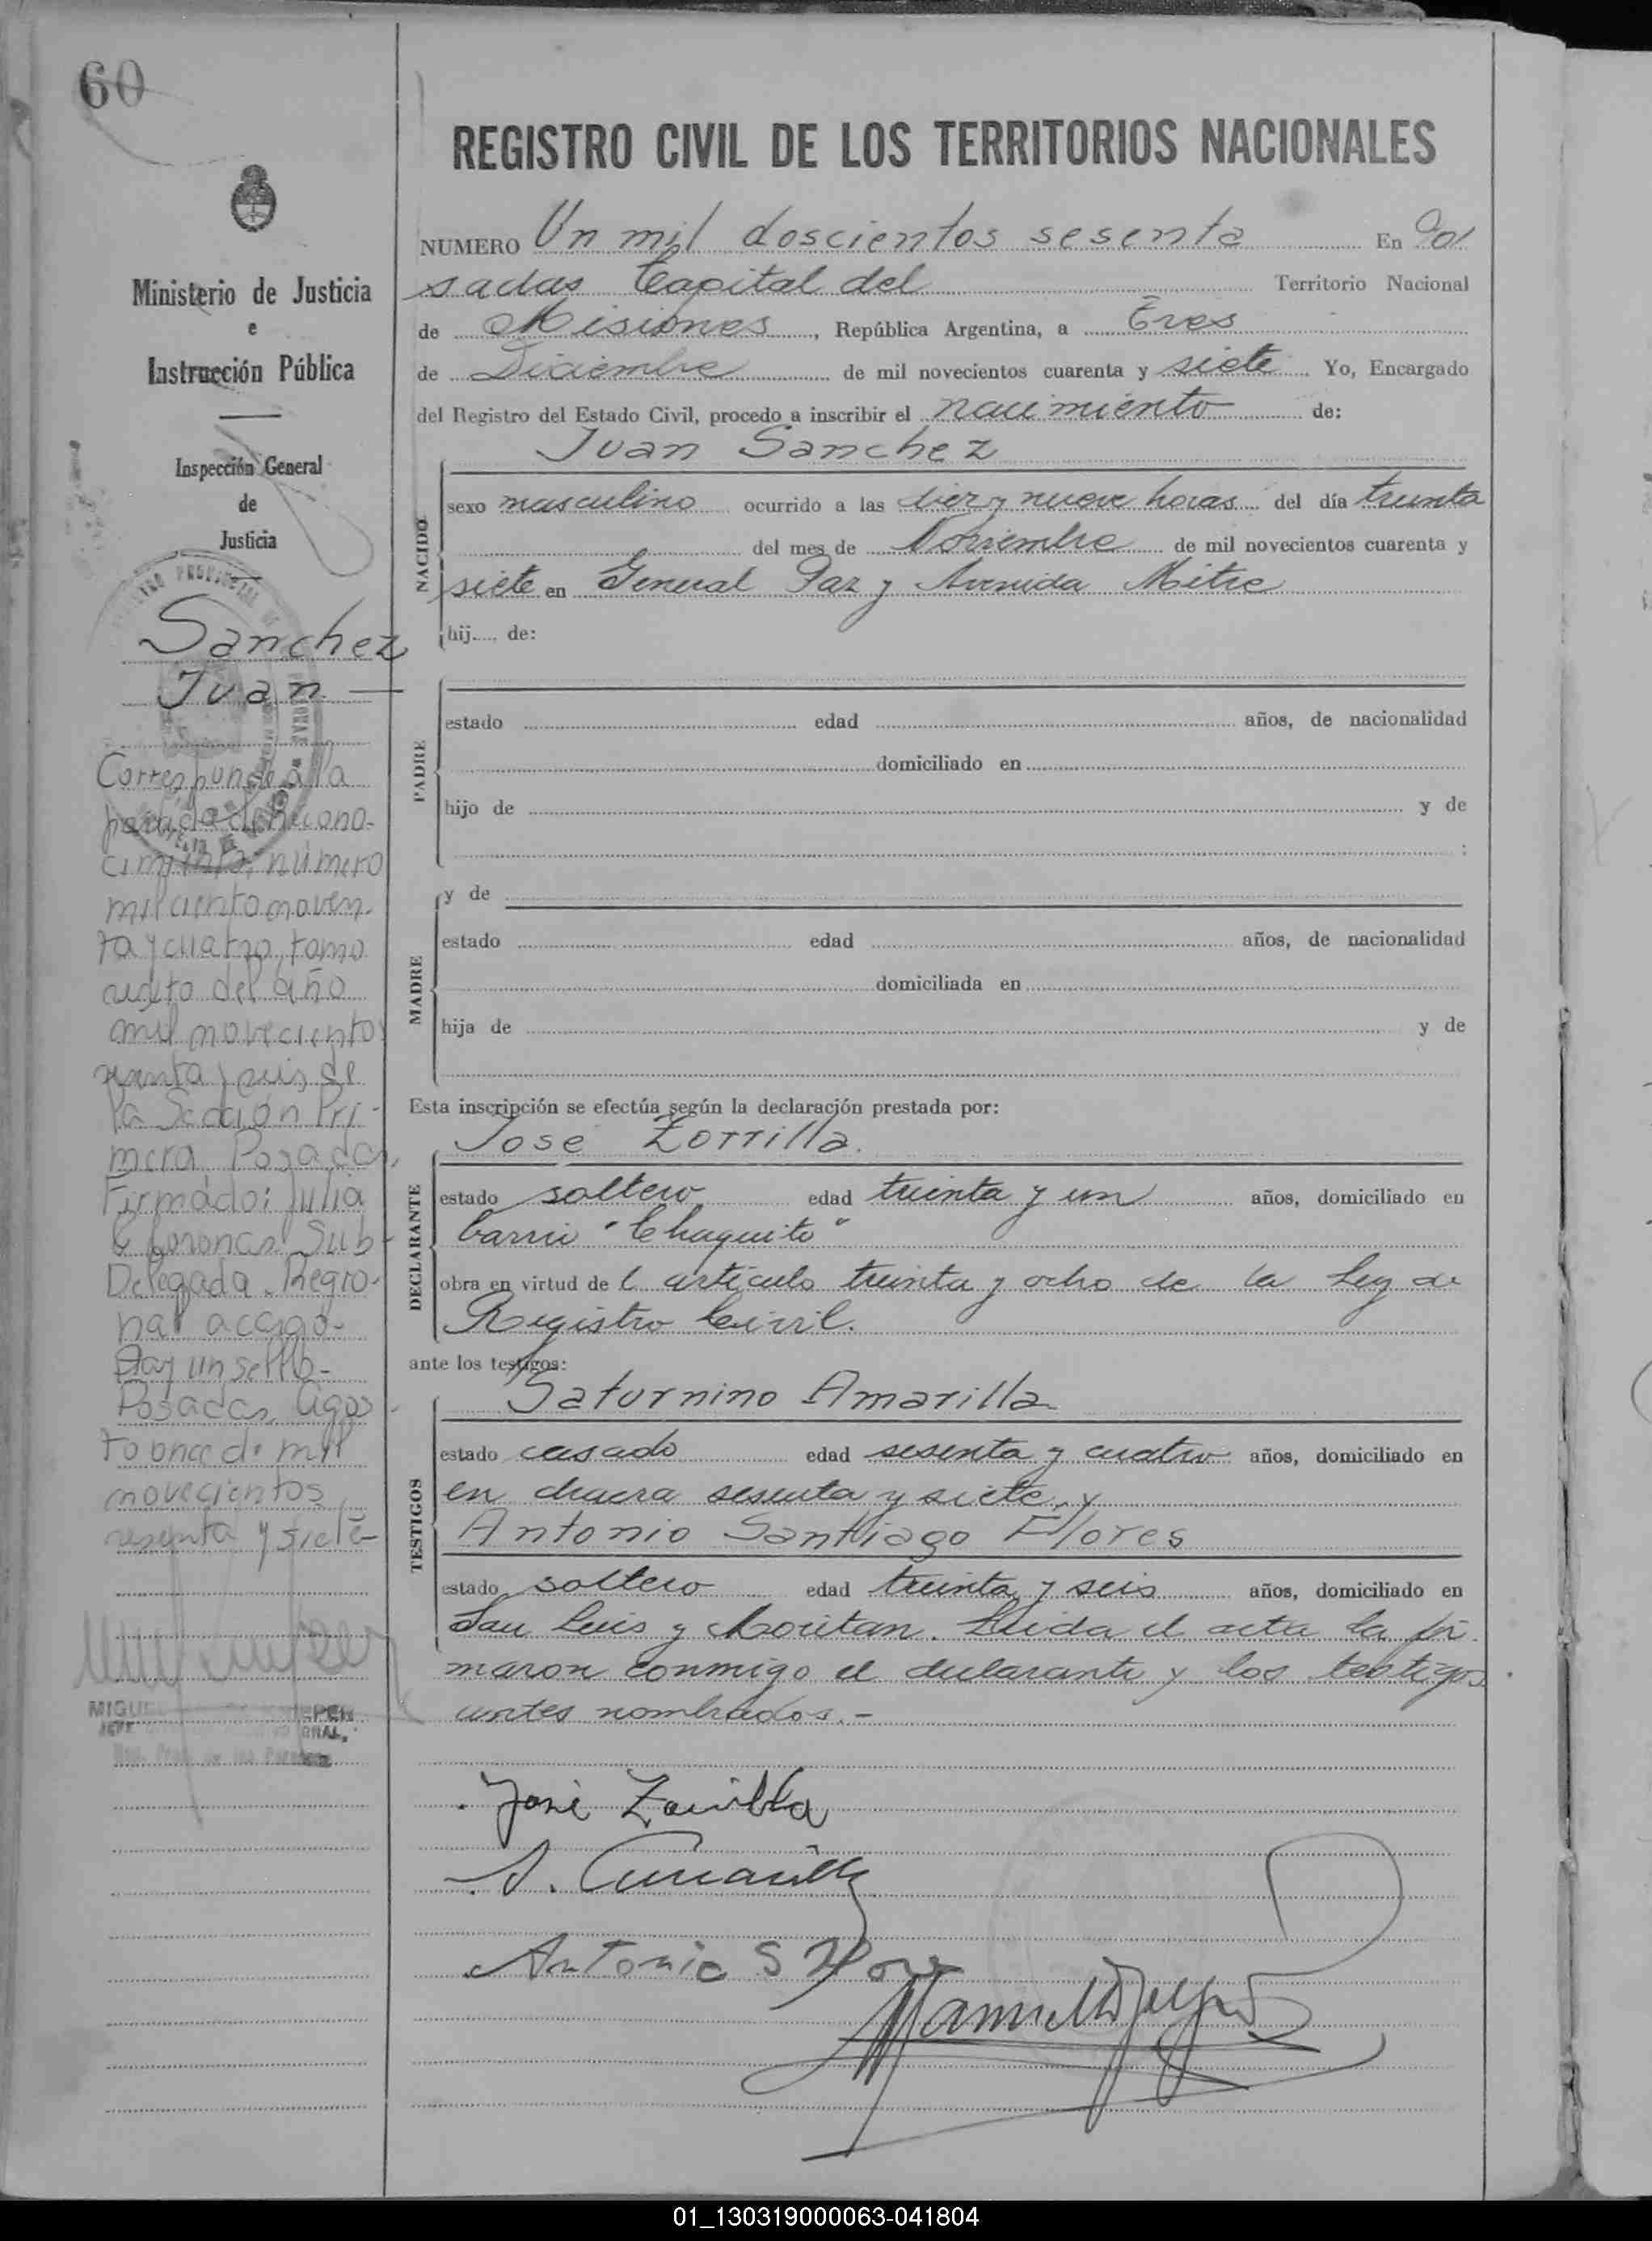 60
REGISTRO CIVIL DE LOS TERRITORIOS NACIONALES
NUMERO Un mil doscientos sesenta En Po
sadas Capital del Territorio Nacional
de Misiones, República Argentina, a Tres
de Diciembre de mil novecientos cuarenta y siete. Yo, Encargado
del Registro del Estado Civil, procedo a inscribir el nacimiento de:
Juan Sanchez
NACIDO
sexo masculino ocurrido a las diez y nueve horas del día treinta
del mes de Noviembre de mil novecientos cuarenta y
siete en General Paz y Avenida Mitre
hij de:
PADRE
estado edad años, de nacionalidad
domiciliado en
hijo de y de
:
MADRE
y de
estado edad años, de nacionalidad
domiciliada en
hija de y de
Esta inscripción se efectúa según la declaración prestada por:
José Zorrilla.
DECLARANTE
estado soltero edad treinta y un años, domiciliado en
barrio "Chaquito"
obra en virtud de l artículo treinta y ocho de la Ley de
Registro Civil.
ante los testigos:
Saturnino Amarilla
TESTIGOS
estado casado edad sesenta y cuatro años, domiciliado en
en chacra sesenta y siete, y
Antonio Santiago Flores
estado soltero edad treinta y seis años, domiciliado en
San Luis y Moritan. Leida el acta la fir
maron conmigo el declarante y los testigos
antes nombrados.-
José Zorrilla
S. Amarilla
Antonio S Flores
Ministerio de Justicia
e
Instrucción Pública
Inspección General
de
Justicia
Sanchez
Juan
Corresponde a la
partida de recono-
cimiento, número
mil ciento noven-
ta y cuatro, tomo
sexto del año
mil novecientos
sesenta y seis de
la Sección Pri-
mera Posadas,
Firmado: Julia
Coronas Sub-
Delegada Regio-
nal
Hay un sello-
Posadas, Agos-
to once de mil
novecientos
sesenta y siete-
MIGU
JEFE
01_130319000063-041804